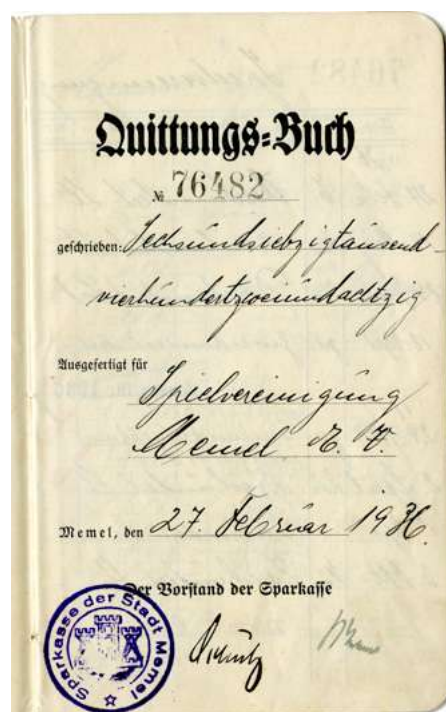 Quittungs-Buch
№ 76482
geschrieben: Sechsundsiebzigtausend-
vierhundertzweiundachtzig
Ausgefertigt für
Spielvereinigung
Memel E. V.
Memel, den 27. Februar 1936
Der Vorstand der Sparkasse
Sparkasse der Stadt Memel